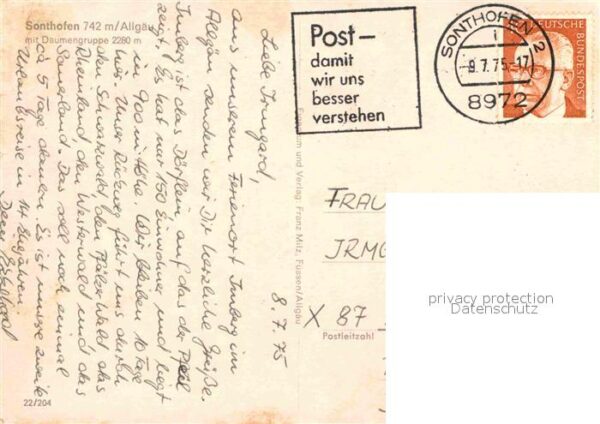 Sonthofen 742 m/Allgäu
mit Daumengruppe 2280 m
8.7.75
Liebe Irmgard,
aus unserem Ferienort Imberg im
Allgäu senden wir Dir herzliche Grüße.
Imberg ist das Dörflein, auf das der Pfeil
zeigt. Es hat nur 150 Einwohner und liegt
in 900 m Höhe. Wir bleiben 10 Tage
hier. Unser Rückweg führt uns durch
den Schwarzwald, den Pfälzer Wald, das
Rheinland, den Westerwald und das
Sauerland. Das soll noch einmal
ca 5 Tage dauern. Es ist unsere zweite
Urlaubsreise in 14 Ehejahren.
22/204
und Verlag Franz Milz, Füssen/Allgäu
Post –
damit
wir uns
besser
verstehen
SONTHOFEN 2
i
9.7.75.-17
8972
DEUTSCHE BUNDESPOST
FRAU
IRMG
X 87
Postleitzahl
privacy protection
Datenschutz